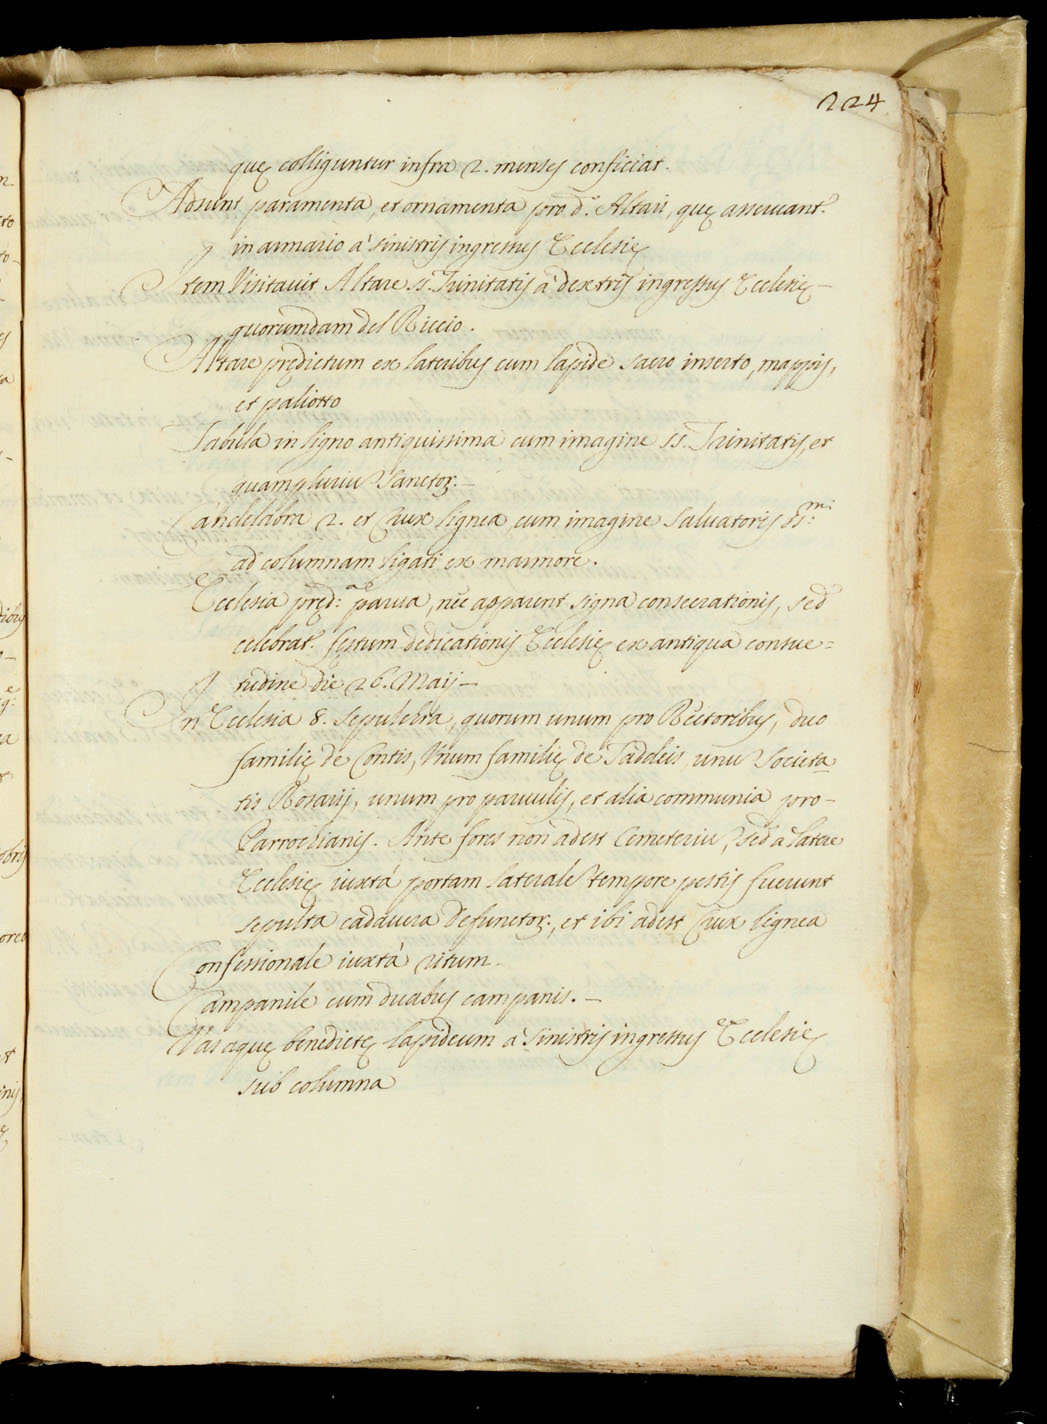 224
quę colliguntur infra 2. menses conficiat.
Adsunt paramenta, et ornamenta pro d.º Altari, quę asseruant.ʳ
in armario à sinistris ingressus Ecclesię
Item Visitauit Altare ss. Trinitatis à dextris ingressus Ecclesię –
quorumdam del Riccio.
Altare prędictum ex lateribus cum lapide sacro inserto, mappis,
et paliotto
Tabula in ligno antiquissima cum imagine ss. Trinitatis, et
quampluriũ Sanctoꝝ. –
Candelabra 2. et Crux lignea, cum imagine Saluatoris ss:ᵐⁱ
ad columnam ligati ex marmore.
Ecclesia pręd:ᵃ parua, nec apparent signa consecrationis, sed
celebrat.ʳ festum dedicationis Ecclesię ex antiqua consue=
tudine die 26. Maij –
In Ecclesia 8. sepulchra, quorum unum pro Rectoribus, duo
familię de Contis, Vnum familię de Taddeis unũ Societa
tis Rosarij, unum pro paruulis, et alia communia pro –
Parrochianis. Ante fores non adest Cemeteriũ, sed a latere
Ecclesię iuxtà portam lateralẽ tempore pestis fuerunt
sepulta cadauera defunctoꝝ., et ibi adest Crux lignea
Confessionale iuxtà ritum.
Campanile cum duabus campanis. –
Vas aquę benedictę lapideum à sinistris ingressus Ecclesię
sub columna